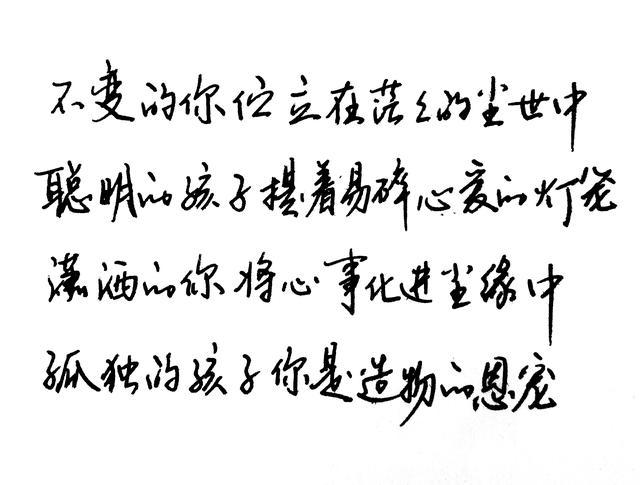 不变的你伫立在茫茫的尘世中
聪明的孩子提着易碎心爱的灯笼
潇洒的你将心事化进尘缘中
孤独的孩子你是造物的恩宠